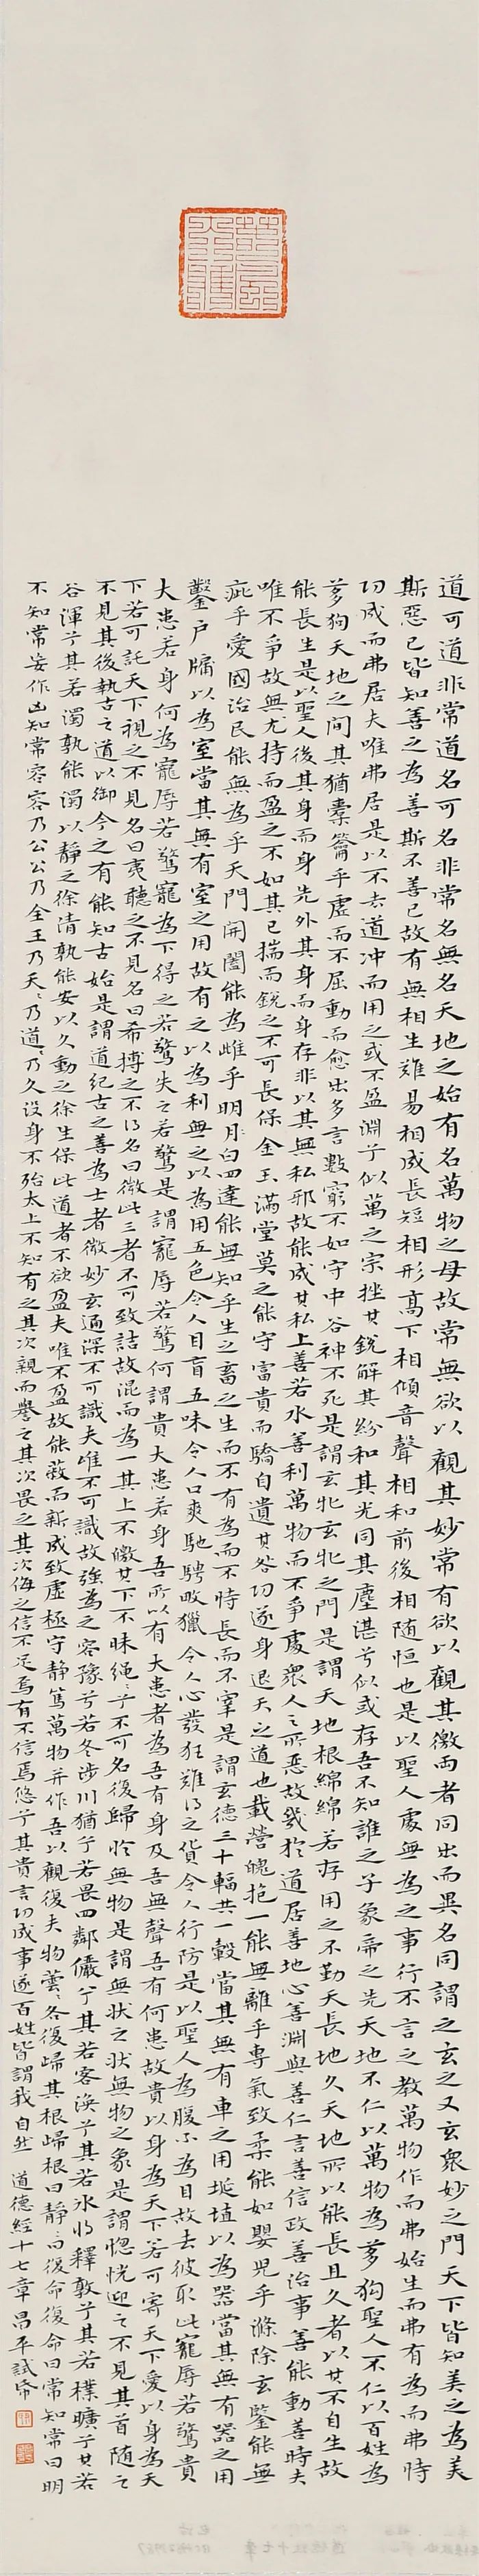 道可道非常道名可名非常名無名天地之始有名萬物之母故常無欲以觀其妙常有欲以觀其徼兩者同出而異名同謂之玄之又玄眾妙之門天下皆知美之為美
斯惡已皆知善之為善斯不善已故有無相生難易相成長短相形高下相傾音聲相和前後相隨恒也是以聖人處無為之事行不言之教萬物作而弗始生而弗有為而弗時
功成而弗居夫唯弗居是以不去道沖而用之或不盈淵乎似萬之宗挫其銳解其紛和其光同其塵湛兮似或存吾不知誰之子象帝之先天地不仁以萬物為芻狗聖人不仁以百姓為
芻狗天地之間其猶橐籥乎虛而不屈動而愈出多言數窮不如守中谷神不死是謂玄牝玄牝之門是謂天地根綿綿若存用之不勤天長地久天地所以能長且久者以其不自生故
能長生是以聖人後其身而身先外其身而身存非以其無私邪故能成其私上善若水善利萬物而不爭處眾人之所惡故幾於道居善地心善淵與善仁言善信政善治事善能動善時夫
唯不爭故無尤持而盈之不如其已揣而銳之不可長保金玉滿堂莫之能守富貴而驕自遺其咎功遂身退天之道也載營魄抱一能無離乎專氣致柔能如嬰兒乎滌除玄鑒能無
疵乎愛國治民能無為乎天門開闔能為雌乎明月白四達能無知乎生之畜之生而不有為而不時長而不宰是謂玄德三十輻共一轂當其無有車之用埏埴以為器當其無有器之用
鑿戶牖以為室當其無有室之用故有之以為利無之以為用五色令人目盲五味令人口爽馳騁畋獵令人心發狂難得之貨令人行防是以聖人為腹不為目故去彼取此寵辱若驚貴
大患若身何為寵辱若驚寵為下得之若驚失之若驚是謂寵辱若驚何謂貴大患若身吾所以有大患者為吾有身及吾無聲吾有何患故貴以身為天下若可寄天下愛以身為天
下若可託天下視之不見名曰夷聽之不見名曰希搏之不得名曰微此三者不可致詰故混而為一其上不皦其下不昧繩〻兮不可名復歸於無物是謂無狀之狀無物之象是謂惚恍迎之不見其首隨之
不見其後執古之道以御今之有能知古始是謂道紀古之善為士者微妙玄通深不可識夫唯不可識故強為之容豫兮若冬涉川猶兮若畏四鄰儼兮其若客渙兮其若冰將釋敦兮其若樸曠兮其若
谷渾兮其若濁孰能濁以靜之徐清孰能安以久動之徐生保此道者不欲盈夫唯不盈故能蔽而新成致虛極守靜篤萬物并作吾以觀復夫物芸〻各復歸其根歸根曰靜〻曰復命復命曰常知常曰明
不知常妄作凶知常容容乃公公乃全王乃天〻乃道〻乃久沒身不殆太上不知有之其次親而譽之其次畏之其次侮之信不足焉有不信焉悠兮其貴言功成事遂百姓皆謂我自然 道德經十七章 昌平試筆